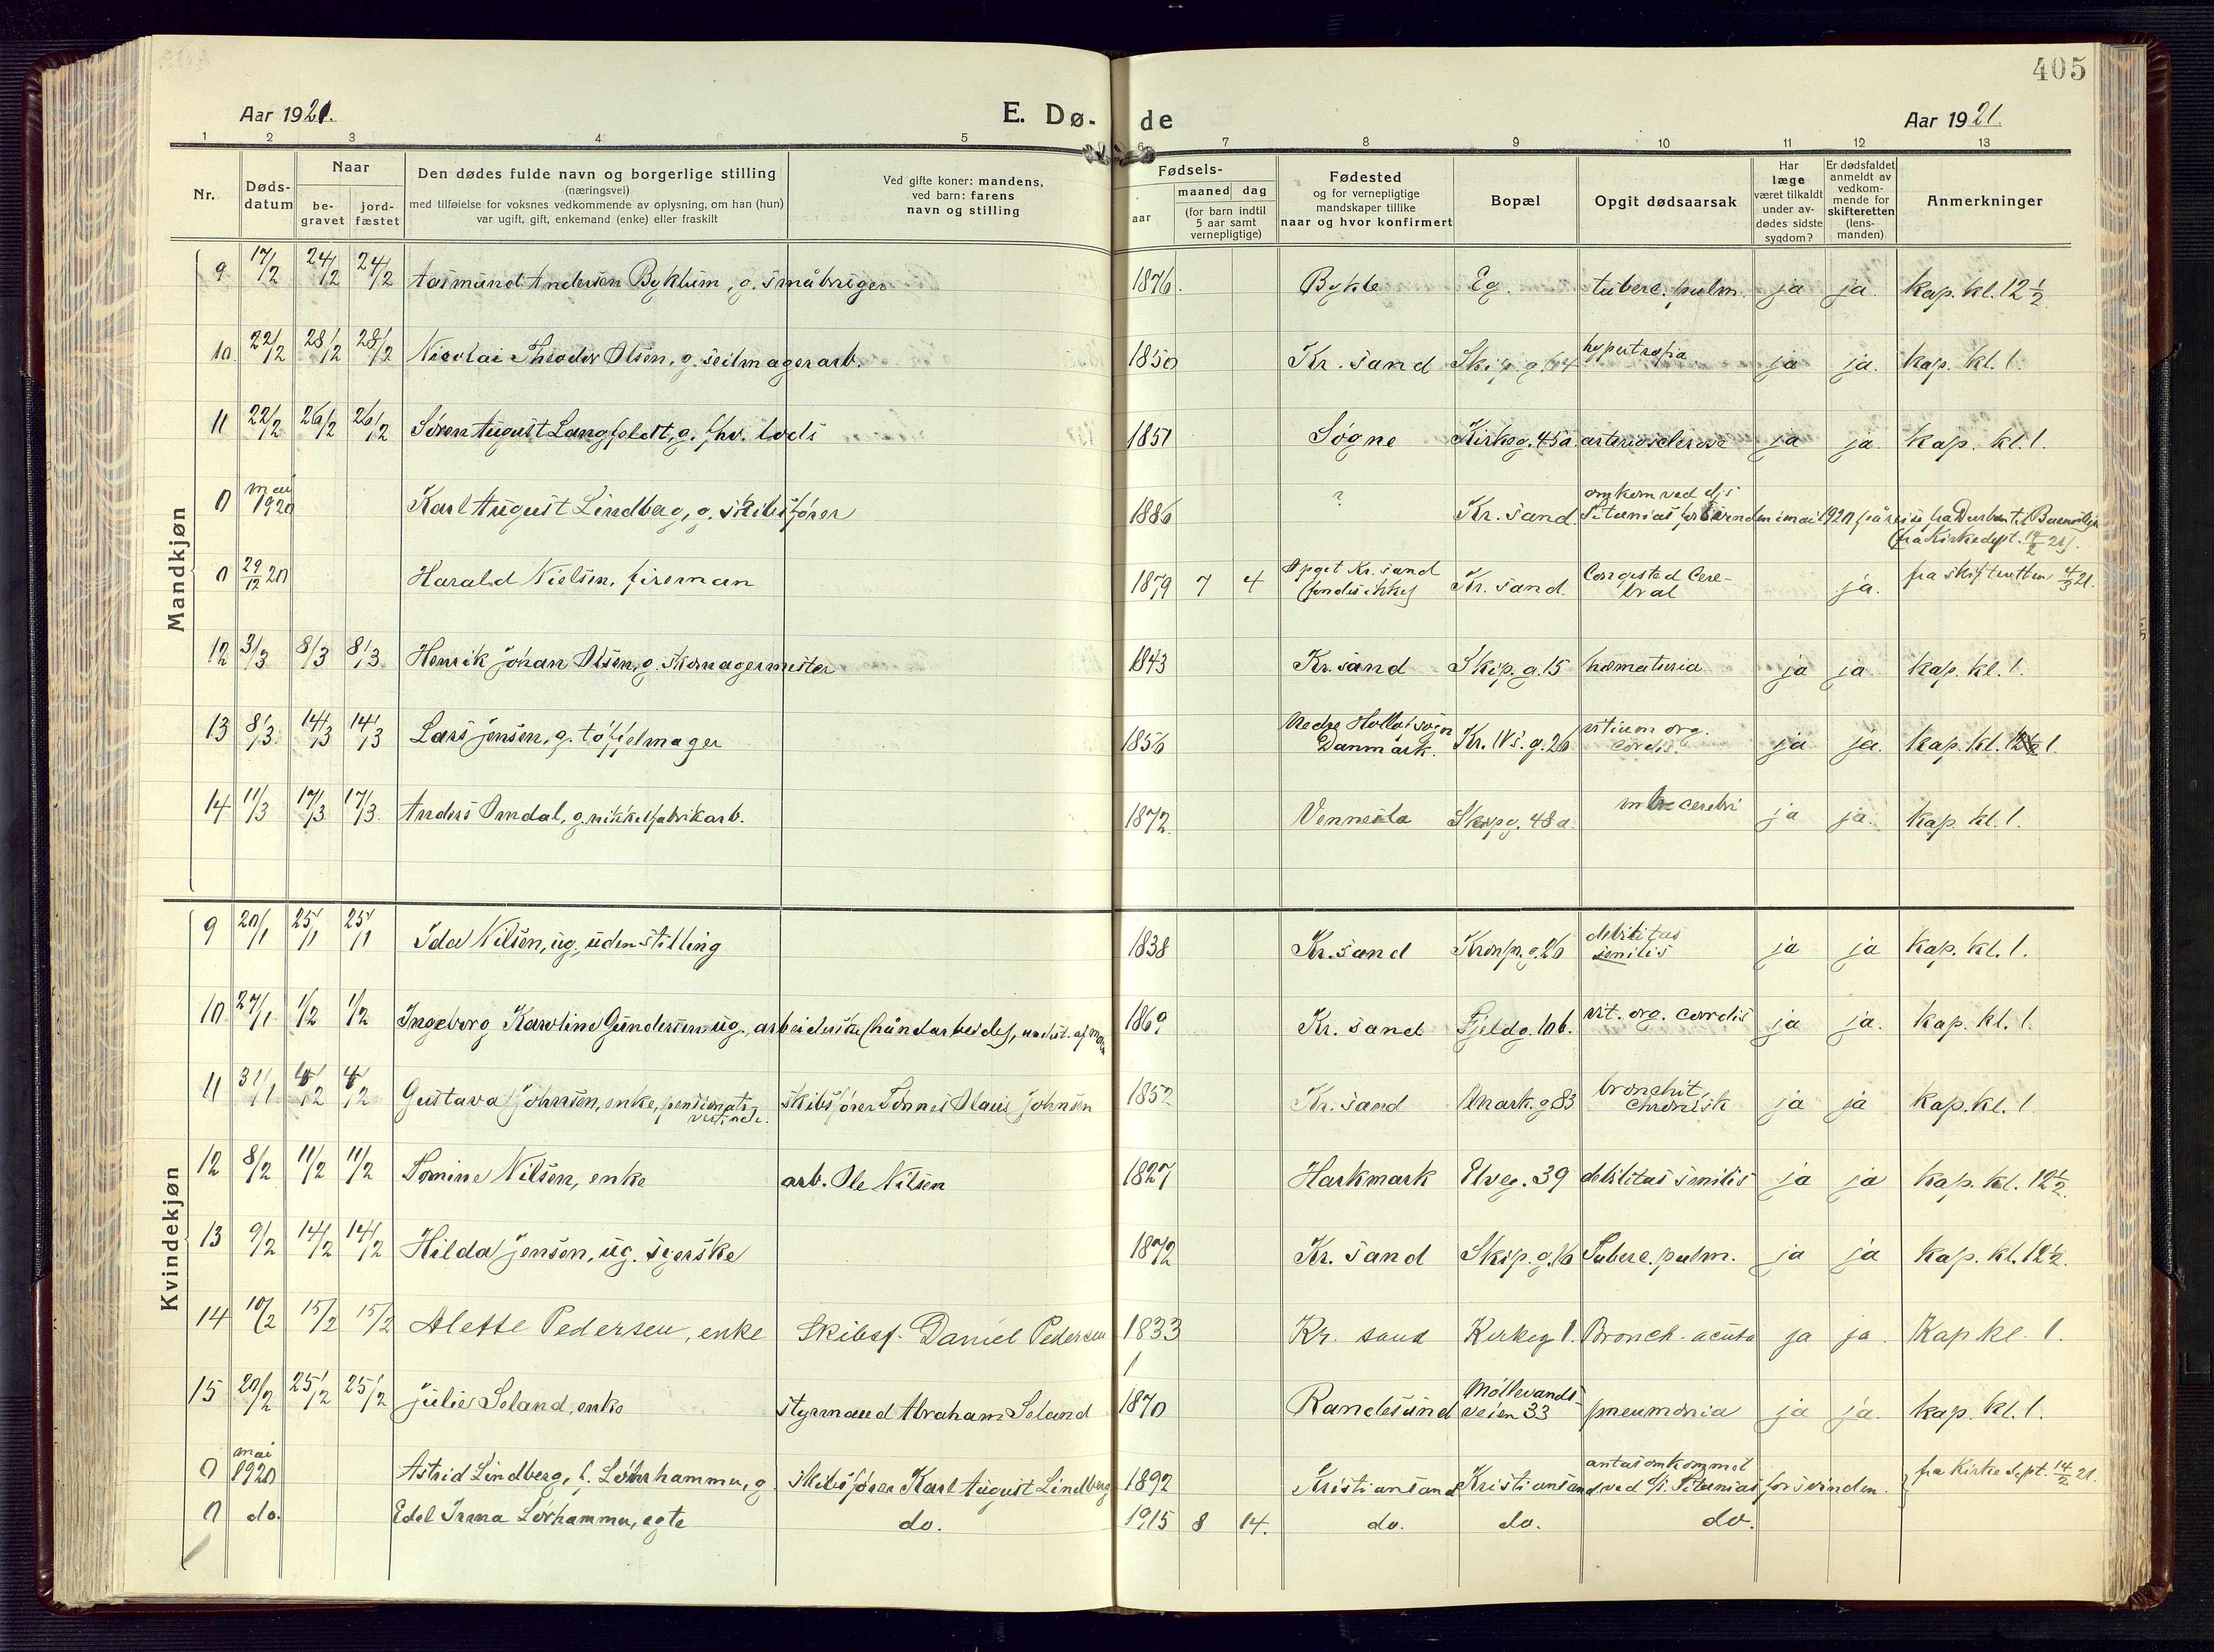 405
Aar 1921.
E. Dø-
de
Aar 1921.
1 2 3 4 5 6 7 8 9 10 11 12 13
Nr.
Døds-
datum
Naar
be-
gravet
jord-
fæstet
Den dødes fulde navn og borgerlige stilling
(næringsvei)
med tilføielse for voksnes vedkommende av oplysning, om han (hun)
var ugift, gift, enkemand (enke) eller fraskilt
Ved gifte koner: mandens,
ved barn: farens
navn og stilling
Fødsels-
aar
maaned dag
(for barn indtil
5 aar samt
vernepligtige)
Fødested
og for vernepligtige
mandskaper tillike
naar og hvor konfirmert
Bopæl
Opgit dødsaarsak
Har
læge
været tilkaldt
under av-
dødes sidste
sygdom?
Er dødsfaldet
anmeldt av
vedkom-
mende for
skifteretten
(lens-
manden)
Anmerkninger
Mandkjøn
9 17/2 24/2 24/2 Aasmund Andersen Byklum, g. småbruger 1876. Bykle Eg. tuberc. pulm. ja ja. kap. kl. 12 1/2
10 22/2 28/2 28/2 Nicolai Theodor Olsen, g. seilmagerarb. 1850 Kr. sand Skip. g. hypertrofia ja ja. kap. kl. 1.
11 22/2 26/2 26/2 Søren August Langfeldt, g. fhv. lods 1851 Søgne Kirkeg. 45a. arteriosclerose ja ja. kap. kl. 1.
0 mai 1920 Karl August Lindberg, g. skibsfører 1886 ? Kr. sand omkom ved d/s
Titanias forsvinden i mai 1920 på reis fra Durban til
(fra Kirkedept. 14/2 21).
0 29/12 20 Harald Nielsen, fireman 1879 7 4 Opget Kr. sand
(findes ikke) Kr. sand. Congested Cere-
bral ja. fra skifteretten 4/3 21.
12 3/3 8/3 8/3 Henrik Johan Olsen, g. skomagermester 1843 Kr. sand Skip. g. 15 hæmaturia ja ja kap. kl. 1.
13 8/3 14/3 14/3 Lars Jensen, g. tøffelmager 1856 Nedre sogn
Danmark. Kr. IVs. g. 26 vitium org.
cordis. ja ja. kap. kl. 1.
14 11/3 17/3 17/3. Anders Omdal, g. nikkelfabrikarb. 1872. Vennesla Skipg. 48a. cerebri ja ja. kap. kl. 1.
Kvindekjøn
9 20/1 25/1 25/1 Ida Nilsen, ug., uden stilling 1838 Kr. sand Kronpr. g. 26 debilitas
senilis ja ja kap. kl. 1.
10 27/1 1/2 1/2 Ingeborg Karoline Gundersen ug., arbeiderske (håndarbeide), underst. af 1869 Kr. sand Fjeldg. 10b. vit. org. cordis ja ja. kap. kl. 1.
11 31/1 4/2 4/2 Gustava Johnsen, enke, pensionats-
vertinde. skibsfører Tønnes Olaus Johnsen 1852 Kr. sand Mark. g 83 bronchit,
chronisk ja ja kap. kl. 1.
12 8/2 11/2 11/2 Tomine Nilsen, enke arb. Ole Nilsen 1827 Harkmark Elveg. 39 debilitas senilis ja ja kap. kl. 12 1/2.
13 9/2 14/2 14/2 Hilda Jensen, ug. syerske 1872 Kr. sand Skip. g. 16 Tuberc. pulm. ja ja kap. kl. 12 1/2.
14 10/2 15/2 15/2 Alette Pedersen, enke Skibsf. Daniel Pedersen 1833 Kr. sand Kirkeg 1. Bronch. acuta ja ja. Kap kl. 1.
15 20/2 25/2 25/2 Julie Seland, enke styrmand Abraham Seland 1870 Randesund Møllevands-
veien 33 pneumonia ja ja. kap. kl. 1.
0 mai 1920 Astrid Lindberg, f. Lørhammer, g. skibsfører Karl August Lindberg 1892 Kristiansand Kristiansand antas omkommet
ved d/s. Titanias forsvinden. fra Kirkedept. 14/2 21.
0 do. Edel Irena Lørhammer, egte do. 1915 8 14. do. do. do.